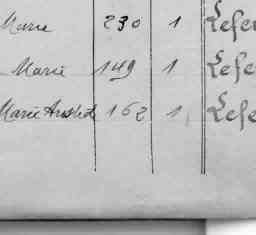 Marie 230 1 Lefe
Marie 149 1 Lefe
Marie 162 1 Lefe